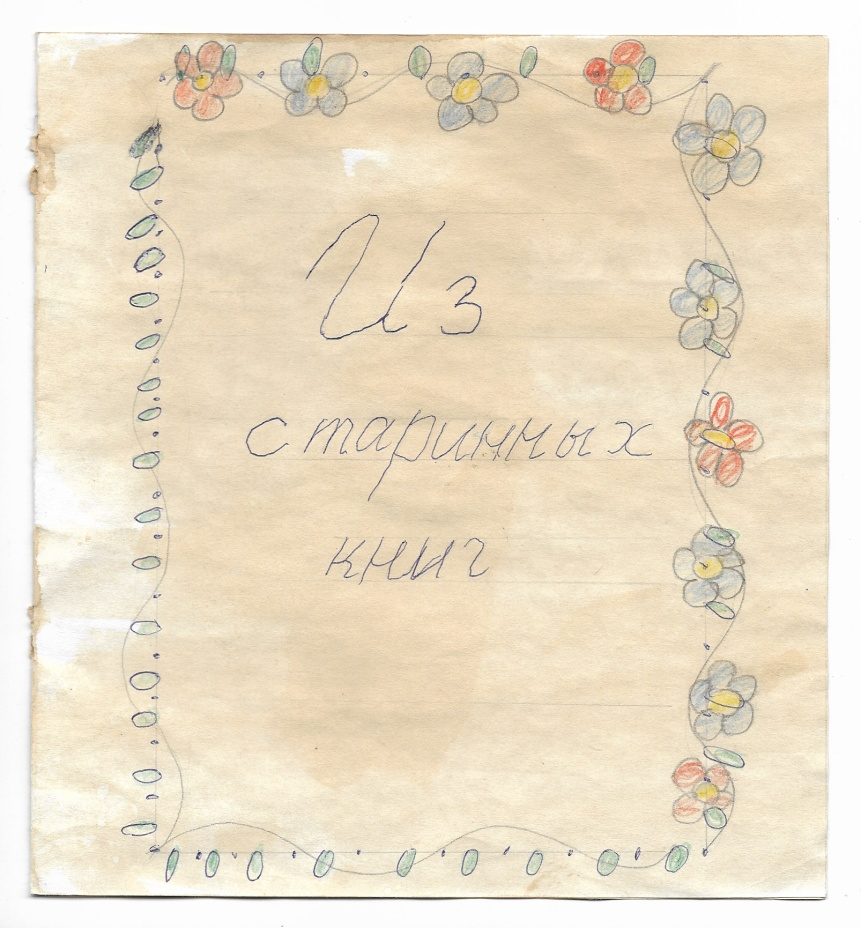 Из
старинных
книг